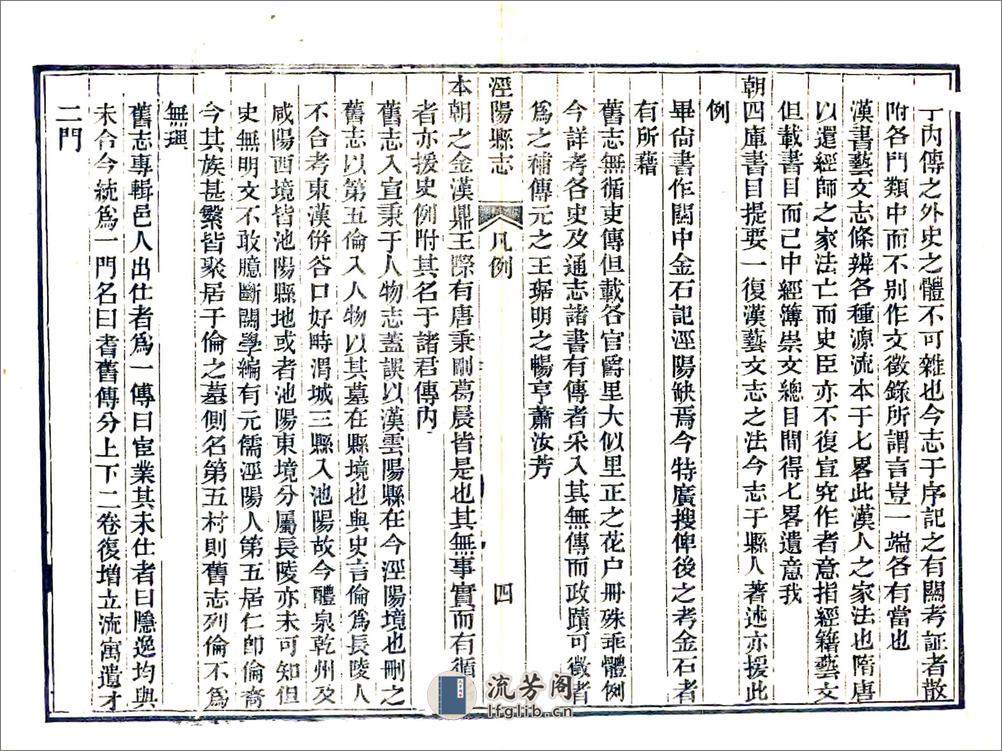 丁內傳之外史之體不可雜也今志于序記之有關考証者散
附各門類中而不别作文徵錄所謂言豈一端各有當也
漢書藝文志條辨各種源流本于七畧此漢人之家法也隋唐
以還經師之家法亡而史臣亦不復宣究作者意指經籍藝文
但載書目而已中經簿崇文總目間得七畧遺意我
朝四庫書目提要一復漢藝文志之法今志于縣人著述亦援此
例
畢尙書作關中金石記涇陽缺焉今特廣搜俾後之考金石者
有所藉
舊志無循吏傳但載各官爵里大似里正之花户册殊乖體例
今詳考各史及通志諸書有傳者采入其無傳而政蹟可徵者
爲之補傳元之王琚明之暢亨蕭汝芳
涇陽縣志 凡例 四
本朝之金漢鼎王際有唐秉剛葛晨皆是也其無事實而有循
者亦援史例附其名于諸君傳內
舊志入宣秉于人物志蓋誤以漢雲陽縣在今涇陽境也刪之
舊志以第五倫入人物以其墓在縣境也與史言倫爲長陵人
不合考東漢併谷口好畤渭城三縣入池陽故今醴泉乾州及
咸陽西境皆池陽縣地或者池陽東境分屬長陵亦未可知但
史無明文不敢臆斷關學編有元儒涇陽人第五居仁卽倫裔
今其族甚繁皆聚居于倫之墓側名第五村則舊志列倫不爲
無理
舊志專輯邑人出仕者爲一傳曰宦業其未仕者曰隱逸均與
未合今統爲一門名曰耆舊傳分上下二卷復增立流寓遺才
二門
流芳阁
lfglib.cn